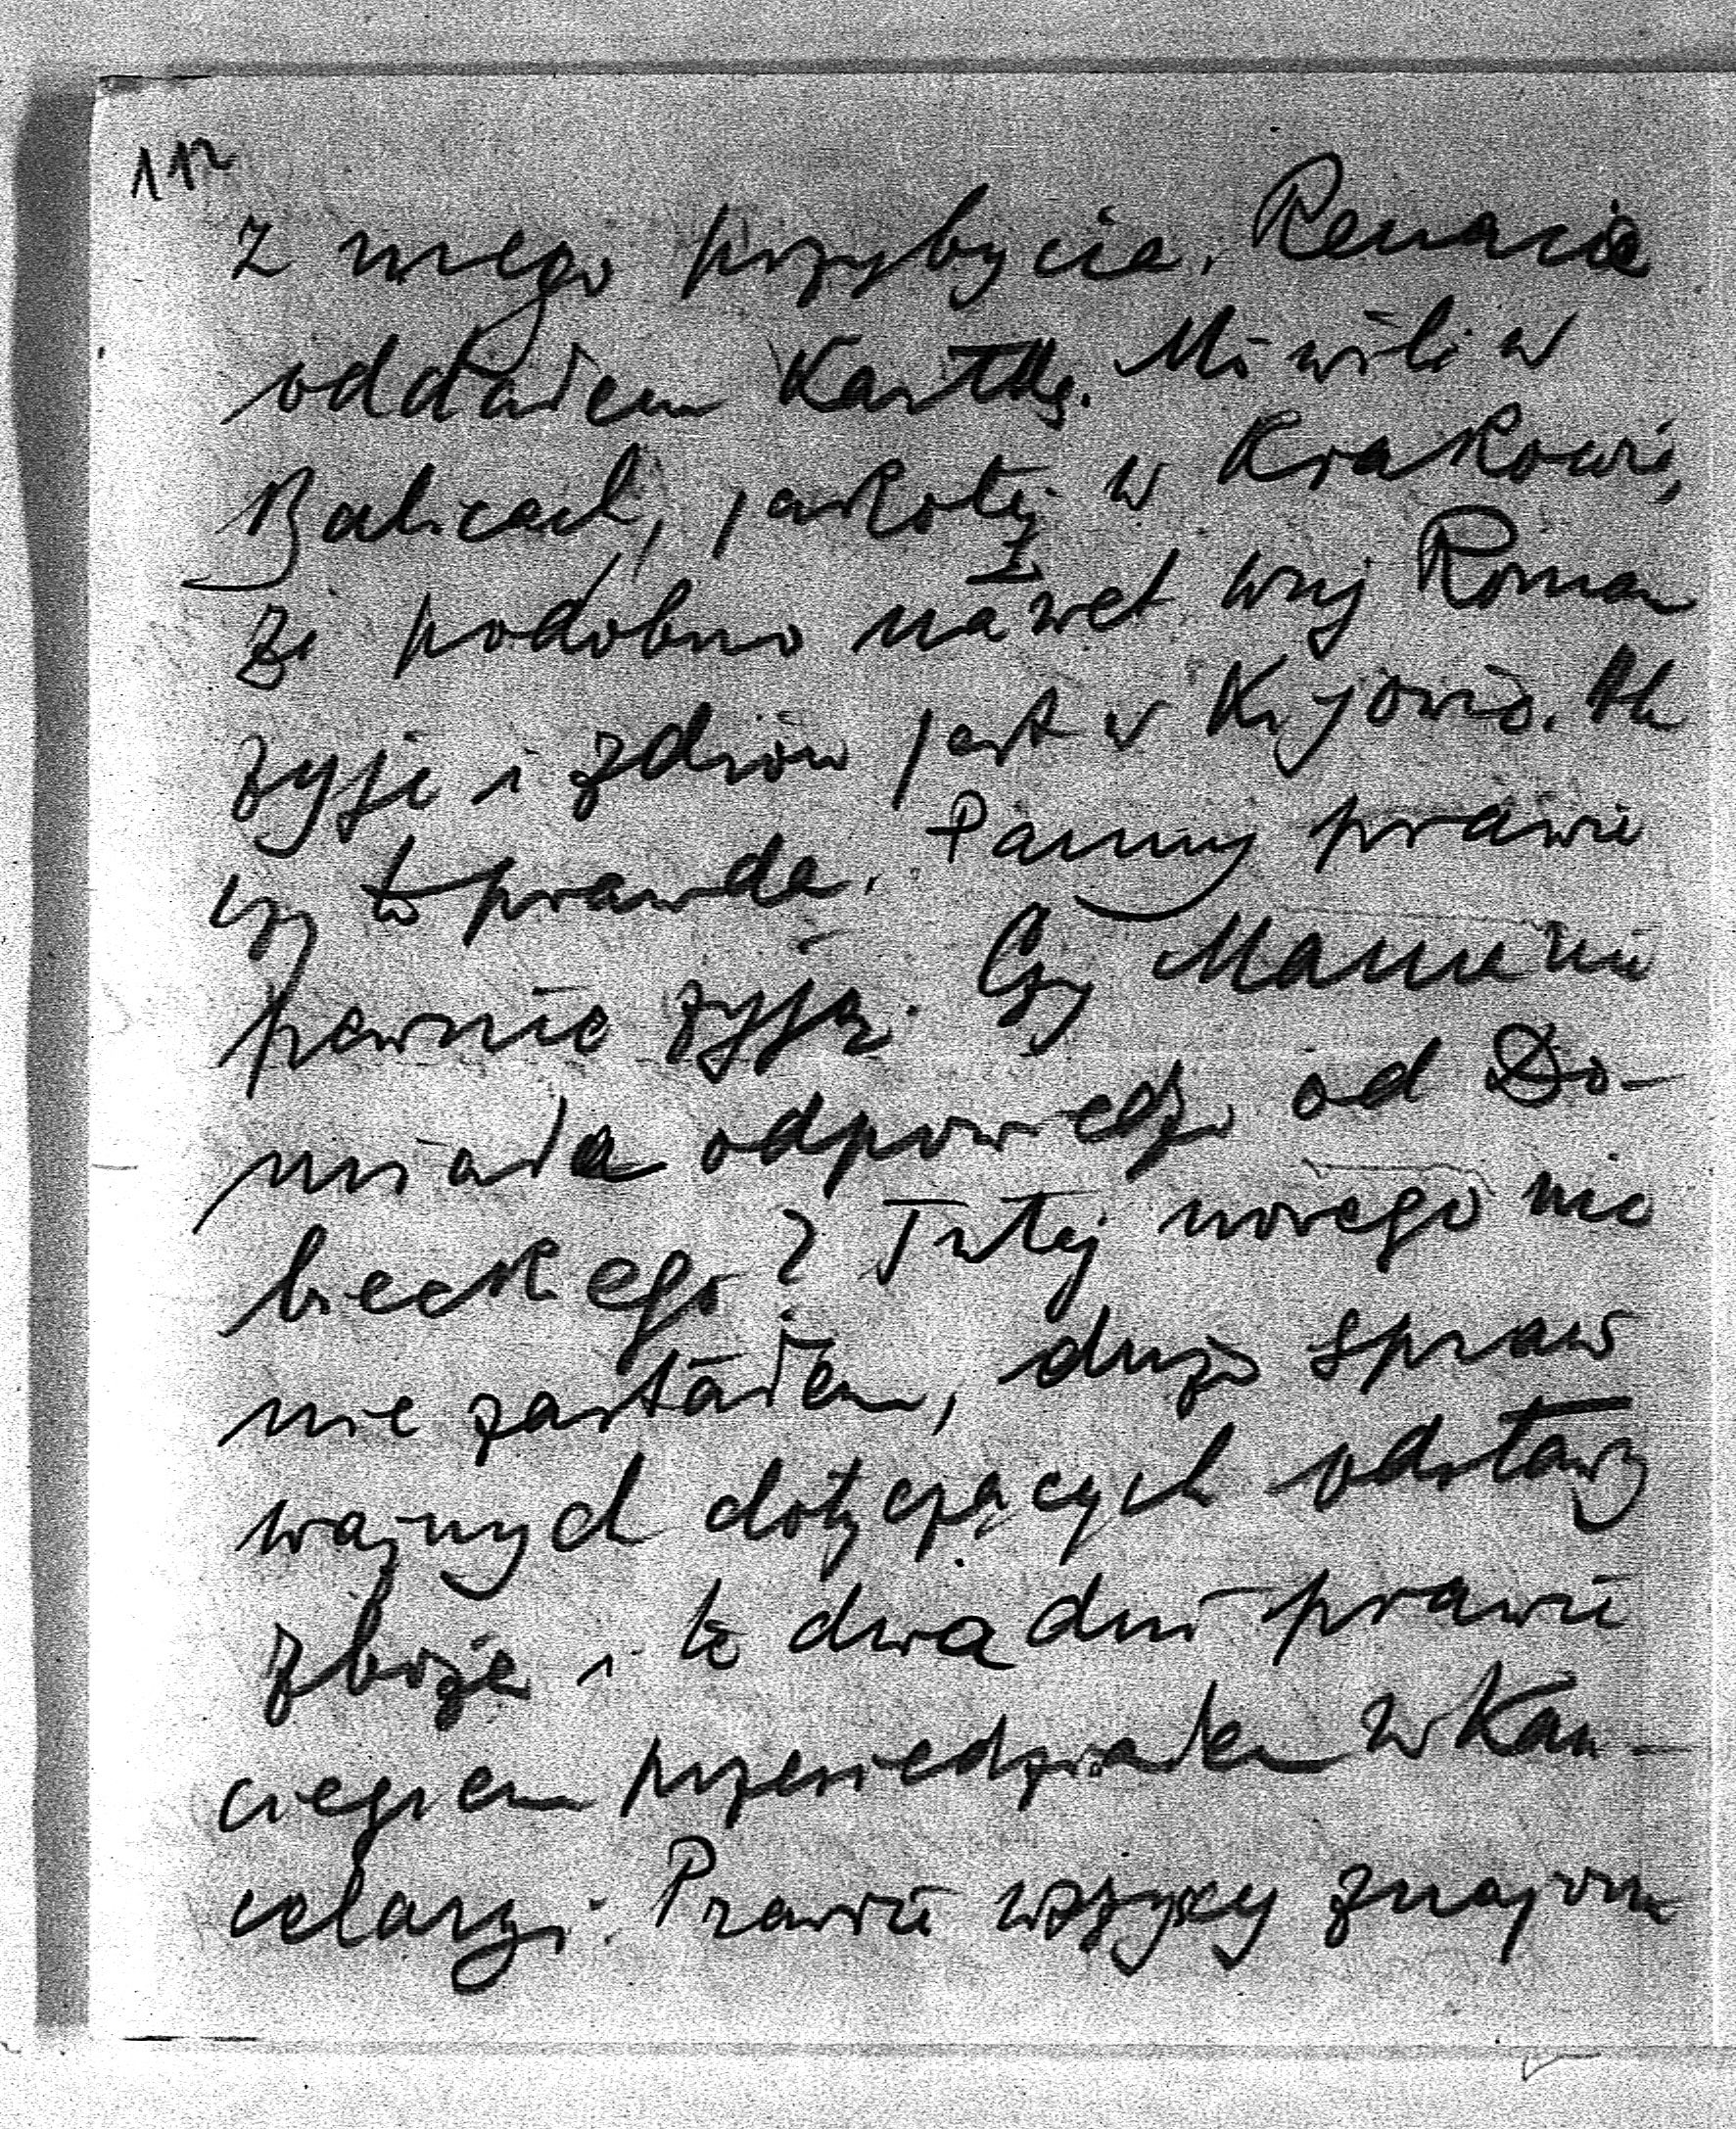 112
z mego przybycia. Renacie
oddałem kartkę. Mówili w
Balicach, jakoteż w Krakowie,
że podobno nawet wuj Roman
żyje i zdrów jest w Kijowie. Ale
czy to prawda. Panny prawie
pewnie żyją. Czy Mama nie
miała odpowiedzi od Do-
bieckiego? Tutej nowego nic
nie zastałem, dużo spraw
ważnych dotyczących odstawy
zboża i te dwa dni prawie
ciągiem przesiedziałem w kan-
celaryi. Prawie wszyscy znajomi